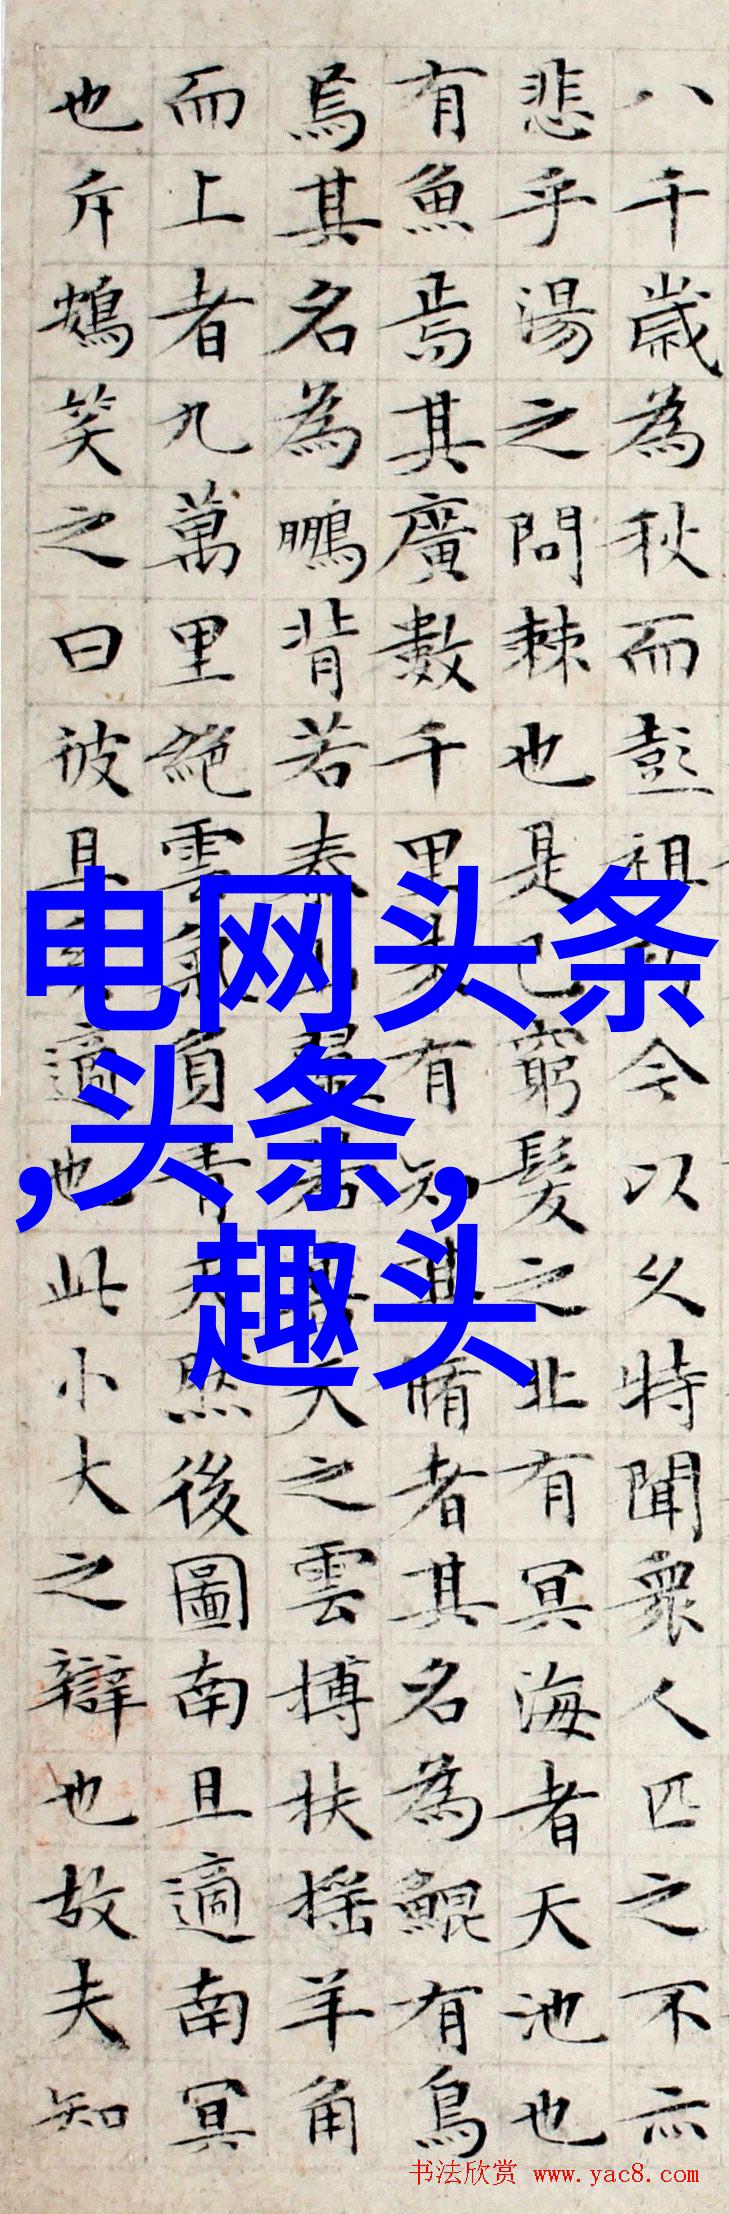 八千歲為秋而彭祖今以久特聞衆人匹之不亦
悲乎湯之問棘也是已窮髮之北有冥海者天池也
有魚焉其廣數千里未有知其脩者其名為鯤有鳥
焉其名為鵬背若泰翼若天之雲搏扶摇羊角
而上者九萬里絶雲氣負青天然後圖南且適南冥
也斥鴳笑之曰彼且適也此小大之辯也故夫知
电网头条
,头条,
趣头
书法欣赏 www.yac8.com